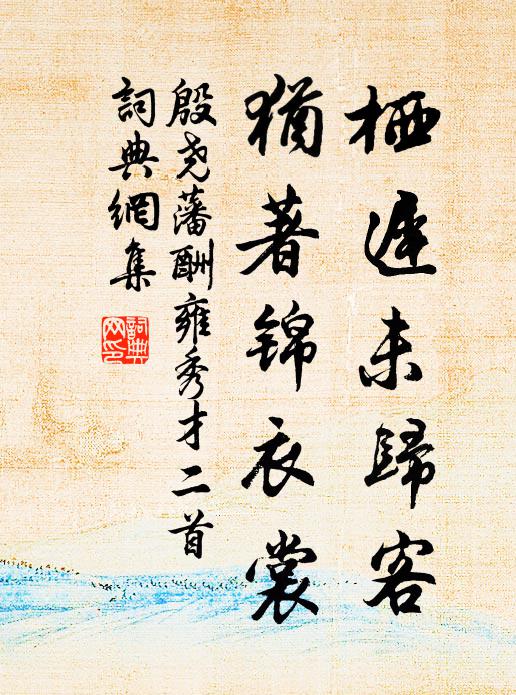 栖遲未歸客
猶著錦衣裳
殷尧藩酬雍秀才二首
詞典網集
詞典